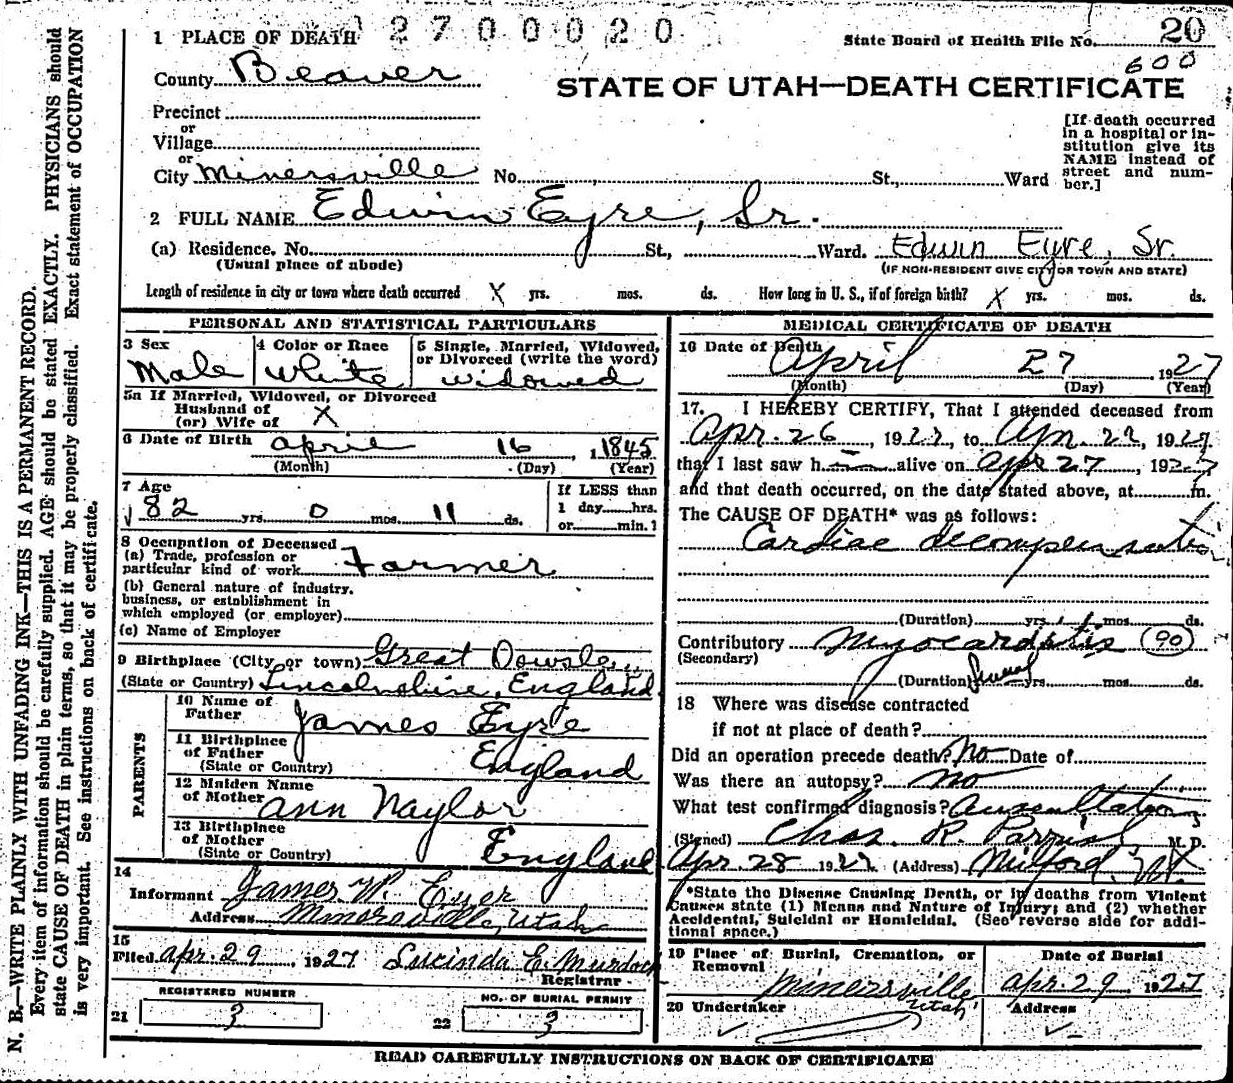 2 7 0 0 0 2 0
1 PLACE OF DEATH
State Board of Health File No. 20
600
County Beaver
STATE OF UTAH—DEATH CERTIFICATE
Precinct
or
Village
or
City Minersville No. St., Ward
[If death occurred
in a hospital or in-
stitution give its
NAME instead of
street and num-
ber.]
2 FULL NAME Edwin Eyre, Sr.
(a) Residence. No. St., Ward. Edwin Eyre, Sr.
(Usual place of abode) (IF NON-RESIDENT GIVE CITY OR TOWN AND STATE)
Length of residence in city or town where death occurred X yrs. mos. ds. How long in U. S., if of foreign birth? X yrs. mos. ds.
PERSONAL AND STATISTICAL PARTICULARS
3 Sex
Male
4 Color or Race
White
5 Single, Married, Widowed,
or Divorced (write the word)
widowed
5a If Married, Widowed, or Divorced
Husband of
(or) Wife of X
6 Date of Birth April 16, 1845
(Month) (Day) (Year)
7 Age
82 yrs. 0 mos. 11 ds.
If LESS than
1 day hrs.
or min.
8 Occupation of Deceased
(a) Trade, profession or
particular kind of work Farmer
(b) General nature of industry,
business, or establishment in
which employed (or employer)
(c) Name of Employer
9 Birthplace (City or town) Great
(State or Country) Lincolnshire, England
PARENTS
10 Name of
Father James Eyre
11 Birthplace
of Father
(State or Country) England
12 Maiden Name
of Mother Ann Naylor
13 Birthplace
of Mother
(State or Country) England
14
Informant James W. Eyer
Address Minersville, Utah
15
Filed Apr. 29, 1927 Lucinda E. Murdock
Registrar
REGISTERED NUMBER
21 3
NO. OF BURIAL PERMIT
22 3
MEDICAL CERTIFICATE OF DEATH
16 Date of Death
April 27 1927
(Month) (Day) (Year)
17. I HEREBY CERTIFY, That I attended deceased from
Apr. 26, 1927, to Apr. 27, 1927
that I last saw h alive on Apr 27, 1927
and that death occurred, on the date stated above, at m.
The CAUSE OF DEATH* was as follows:
Cardiac decompensation
(Duration) yrs. mos. ds.
Contributory Myocarditis (90)
(Secondary)
(Duration) yrs. mos. ds.
18 Where was disease contracted
if not at place of death?
Did an operation precede death? No Date of
Was there an autopsy? no
What test confirmed diagnosis? Auscultation
(Signed) Chas. R. Parrish M. D.
Apr. 28 1927 (Address) Milford, Ut.
*State the Disease Causing Death, or in deaths from Violent
Causes state (1) Means and Nature of Injury; and (2) whether
Accidental, Suicidal or Homicidal. (See reverse side for addi-
tional space.)
19 Place of Burial, Cremation, or
Removal
Minersville
Utah
Date of Burial
Apr. 29, 1927
20 Undertaker
Address
READ CAREFULLY INSTRUCTIONS ON BACK OF CERTIFICATE
N. B.—WRITE PLAINLY WITH UNFADING INK—THIS IS A PERMANENT RECORD.
Every item of information should be carefully supplied. AGE should be stated EXACTLY. PHYSICIANS should
state CAUSE OF DEATH in plain terms, so that it may be properly classified. Exact statement of OCCUPATION
is very important. See instructions on back of certificate.